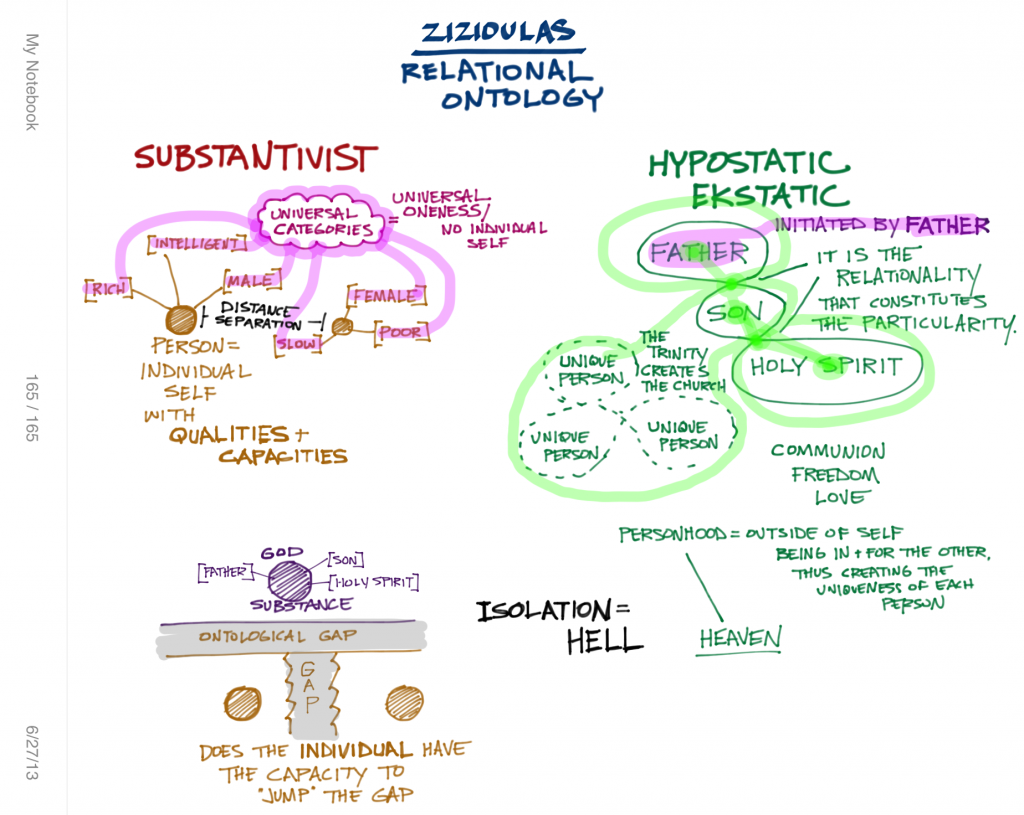 My Notebook
165 / 165
6/27/13
ZIZIOULAS
RELATIONAL
ONTOLOGY
SUBSTANTIVIST
UNIVERSAL
CATEGORIES
= UNIVERSAL
ONENESS/
NO INDIVIDUAL
SELF
[INTELLIGENT]
[RICH]
[MALE]
DISTANCE
SEPARATION
[FEMALE]
[SLOW]
[POOR]
PERSON =
INDIVIDUAL
SELF
WITH
QUALITIES +
CAPACITIES
GOD
[FATHER]
[SON]
[HOLY SPIRIT]
SUBSTANCE
ONTOLOGICAL GAP
G
A
P
DOES THE INDIVIDUAL HAVE
THE CAPACITY TO
"JUMP" THE GAP
HYPOSTATIC
EKSTATIC
INITIATED BY FATHER
FATHER
IT IS THE
RELATIONALITY
THAT CONSTITUTES
THE PARTICULARITY.
SON
HOLY SPIRIT
THE
TRINITY
CREATES
THE CHURCH
UNIQUE
PERSON
UNIQUE
PERSON
UNIQUE
PERSON
COMMUNION
FREEDOM
LOVE
PERSONHOOD = OUTSIDE OF SELF
BEING IN + FOR THE OTHER,
THUS CREATING THE
UNIQUENESS OF EACH
PERSON
ISOLATION =
HELL
HEAVEN